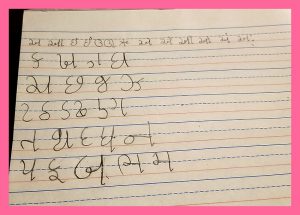 અ આ ઇ ઈ ઉ ઊ * એ ઐ ઓ ઔ અં અઃ
ક ખ ગ ઘ
ચ છ જ ઝ
ટ ઠ ડ ઢ ણ
ત થ દ ધ ન
પ ફ બ ભ મ